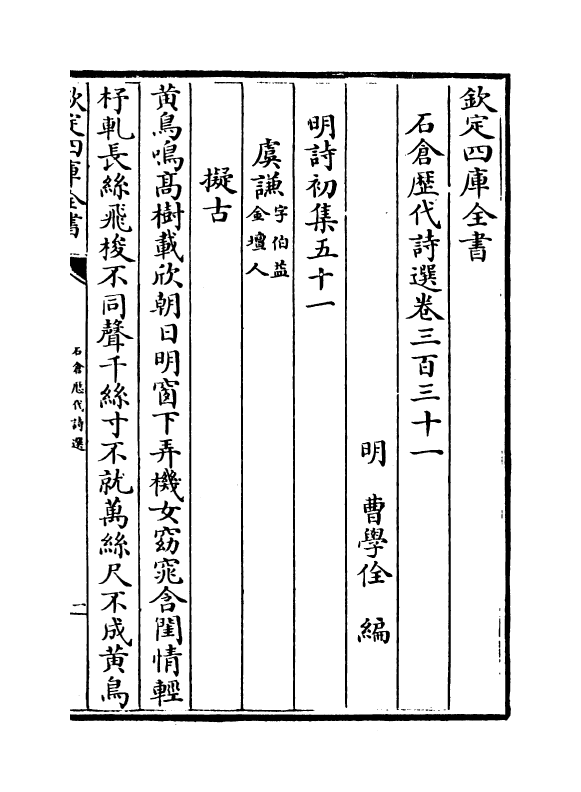 欽定四庫全書
石倉歴代詩選卷三百三十一
明 曹學佺 編
明詩初集五十一
虞謙字伯益金壇人
擬古
黄鳥鳴髙樹載欣朝日明窗下弄機女窈窕含閨情輕
杼軋長絲飛梭不同聲千絲寸不就萬絲尺不成黄鳥
欽定四庫全書
石倉歴代詩選
一